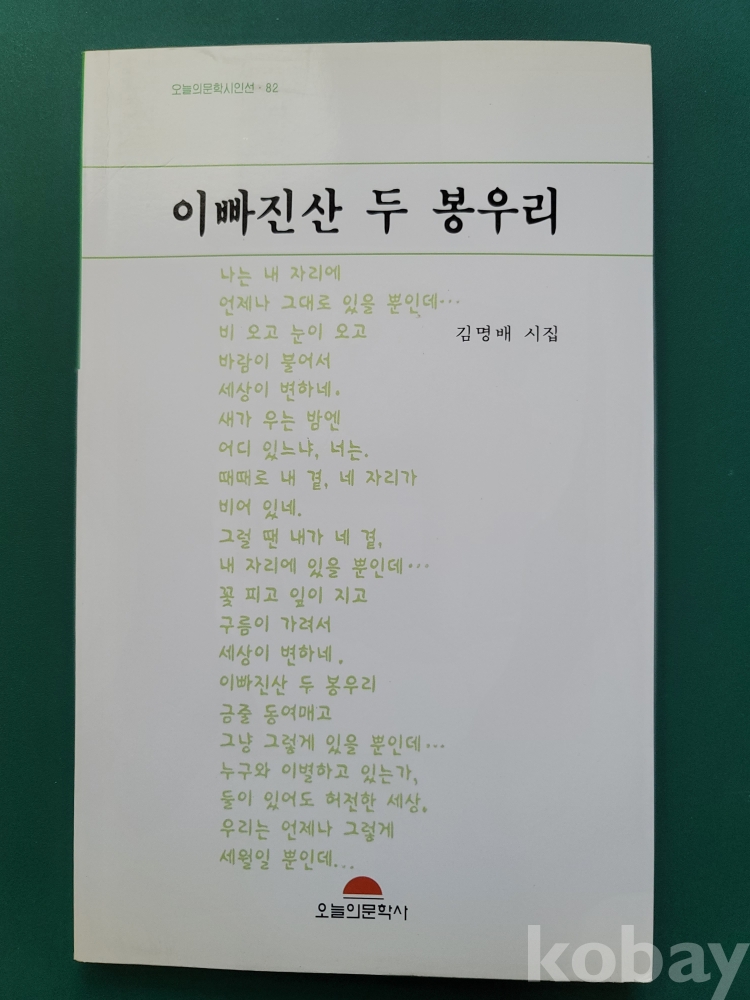 오늘의문학시인선·82
이빠진산 두 봉우리
나는 내 자리에
언제나 그대로 있을 뿐인데…
비 오고 눈이 오고
김명배 시집
바람이 불어서
세상이 변하네.
새가 우는 밤엔
어디 있느냐, 너는.
때때로 내 곁, 네 자리가
비어 있네.
그럴 땐 내가 네 곁,
내 자리에 있을 뿐인데…
꽃 피고 잎이 지고
구름이 가려서
세상이 변하네.
이빠진산 두 봉우리
금줄 동여매고
그냥 그렇게 있을 뿐인데…
누구와 이별하고 있는가,
둘이 있어도 허전한 세상.
우리는 언제나 그렇게
세월일 뿐인데...
오늘의문학사
kobay